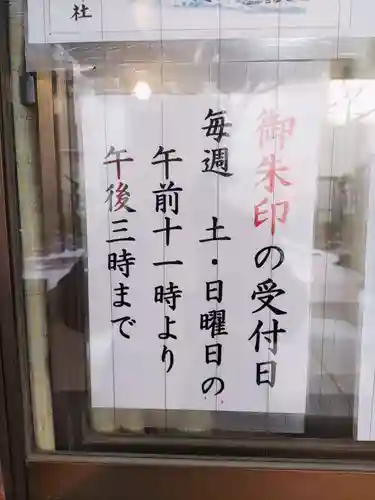 社
御朱印の受付日
毎週 土・日曜日の
午前十一時より
午後三時まで